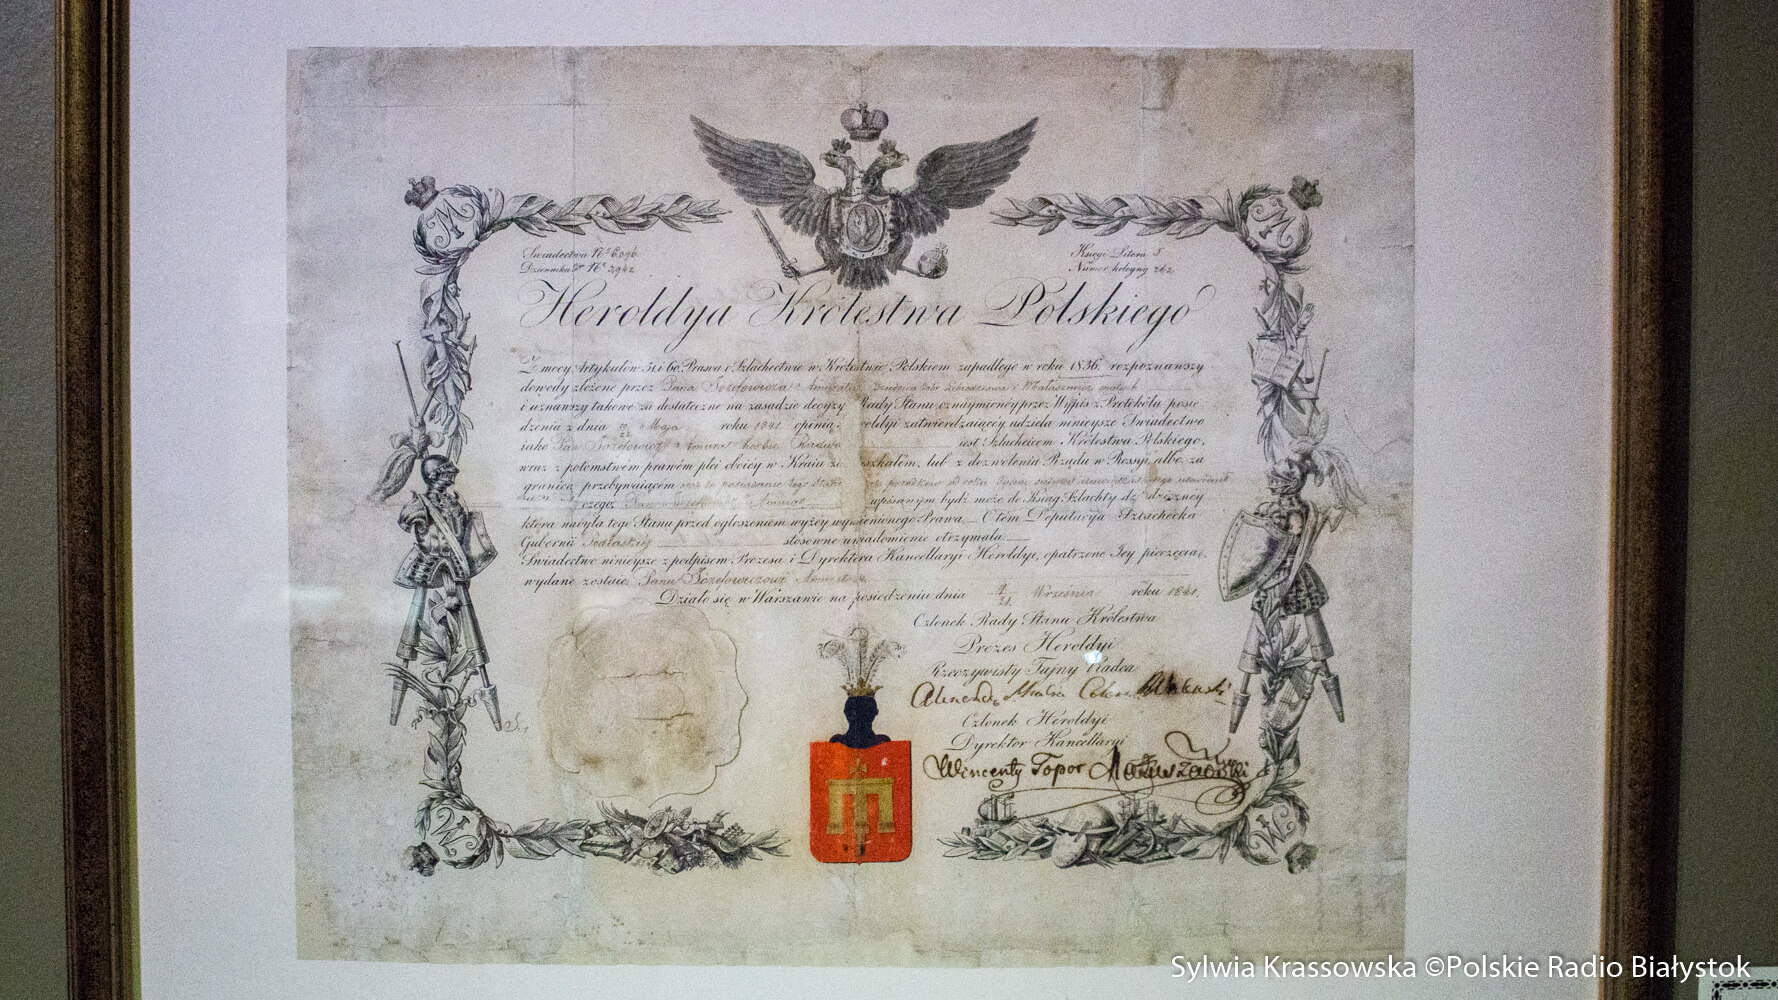 Świadectwa Nº 6,076
Dziennika Nº 3,942
Księgi Litera S
Numer koleyny 262
Heroldya Królestwa Polskiego
Z mocy Artykułów 51 i 60. Prawa o Szlachectwie w Królestwie Polskiem zapadłego w roku 1836. rozpoznawszy
dowody złożone przez Pana Józefowicza Amurata
i uznawszy takowe za dostateczne na zasadzie decyzyi Rady Stanu, oznaymioney przez Wypis z Protokółu posie
dzenia z dnia Maja roku 1841 opinią Heroldyi zatwierdzaiącey udziela ninieysze Świadectwo
iako Pan Józefowicz Amurat herbu Radwan iest Szlachcicem Królestwa Polskiego,
wraz z potomstwem prawem płci oboiey w Kraiu zamieszkałem, lub z dozwolenia Rządu w Rossyi, albo za
granicą przebywaiącem oraz że posiadanie tego Stanu
czego, Pan Józefowicz Amurat zapisanym bydź może do Ksiąg Szlachty dziedziczney
która nabyła tego Stanu przed ogłoszeniem wyżey wymienionego Prawa. O tem Deputacya Szlachecka
Gubernii Podlaskiey stosowne uwiadomienie otrzymała
Świadectwo ninieysze z podpisem Prezesa i Dyrektora Kancellaryi Heroldyi, opatrzone Jey pieczęcią,
wydane zostaie Panu Józefowiczowi Amuratowi
Działo się w Warszawie na posiedzeniu dnia 9/21 Września roku 1841.
Członek Rady Stanu Królestwa
Prezes Heroldyi
Rzeczywisty Tajny Radca
Członek Heroldyi
Dyrektor Kancellaryi
Wincenty Topor Matuszewski
Sylwia Krassowska ©Polskie Radio Białystok